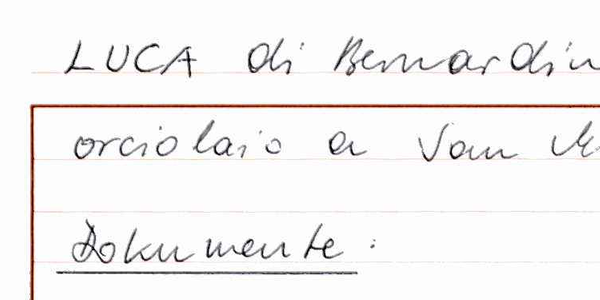 LUCA di Bernardin
orciolaio a San
Dokumente: